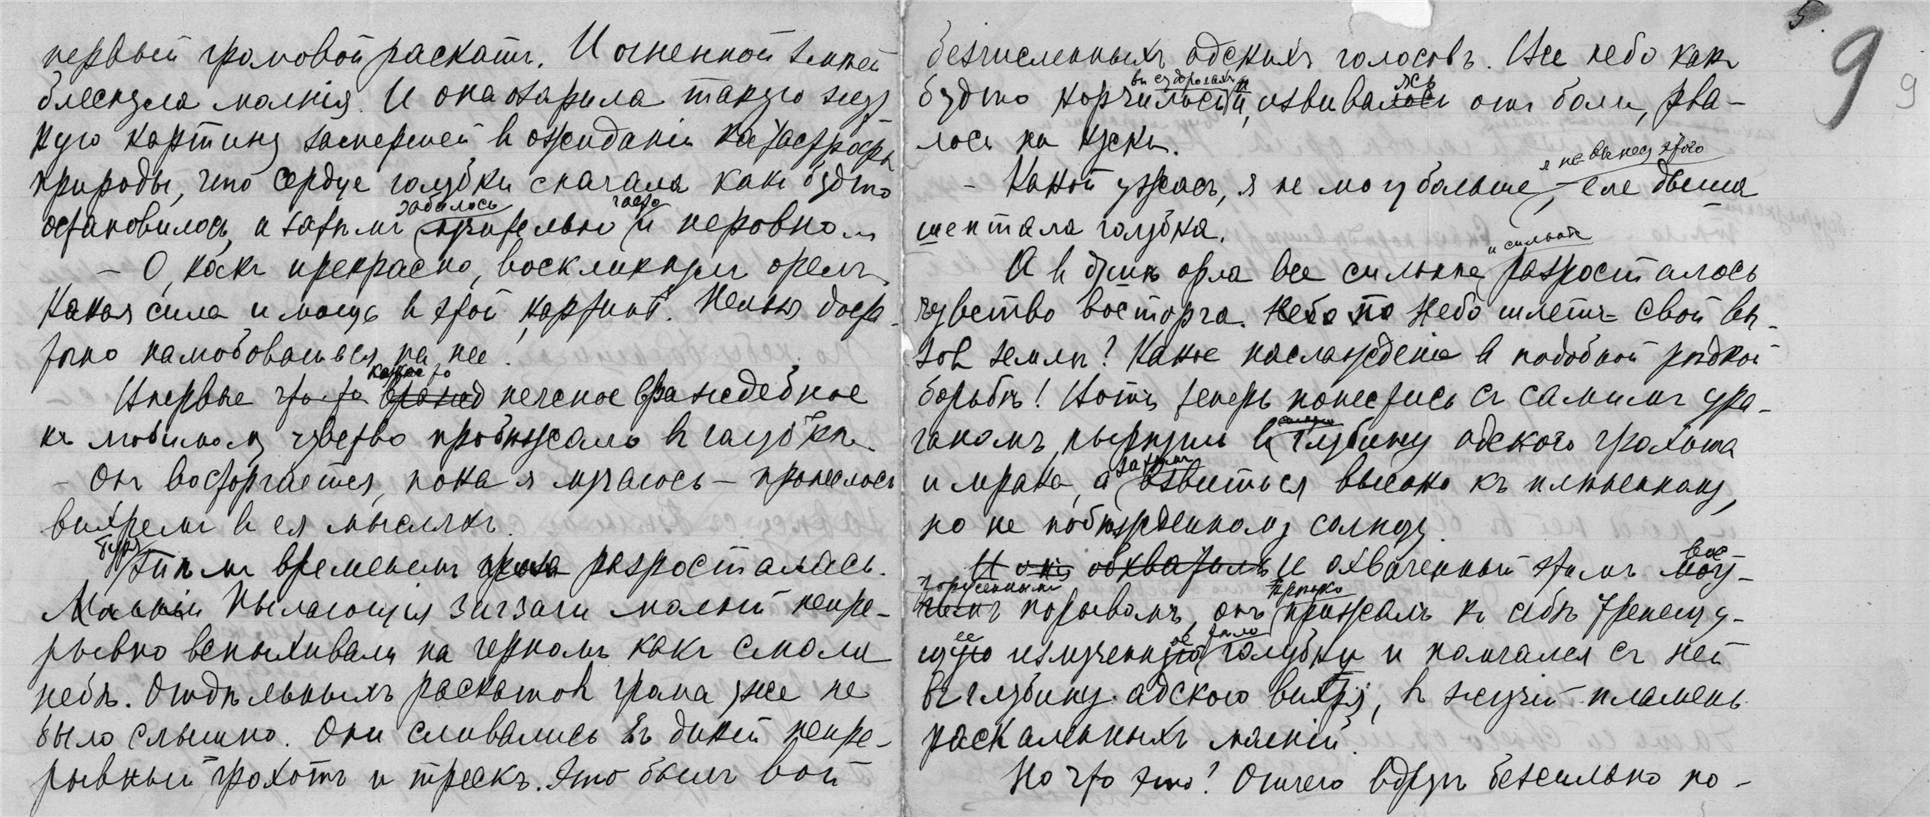 первый громовой раскатъ. И огненной змѣей
блеснула молнія. И она озарила такую жут
кую картину замершей в ожиданіи катастрофы
природы, что сердце голубки сначала какъ будто
забилось часто
остановилось, а затѣмъ мучительно и неровно
– О, какъ прекрасно, воскликнулъ орелъ
Какая сила и мощь в этой картинѣ. Нельзя доста-
точно налюбоваться на нее.
какое то
Впервые что то неясное враждебное
къ любимому чувство пробѣжало в голубкѣ.
– Он восторгается, пока я мучаюсь – пронеслось
вихремъ в ея мысляхъ.
буря
Тѣмъ временемъ гроза разросталась.
Молніи Пылающія зигзаги молній непре-
рывно вспыхивали на черномъ какъ смола
небѣ. Отдѣльныхъ раскатов грома уже не
было слышно. Они сливались въ дикій непре-
рывный грохотъ и трескъ. Это былъ вой
5.
9 9
безчисленныхъ адскихъ голосовъ. Все небо какъ
въ судорогахъ и
будто корчилось и, извивалось отъ боли, рва-
лось на куски.
я не вынесу этого
– Какой ужасъ, я не могу больше, – еле дыша
шептала голубка.
и сильнѣе
А в душѣ орла все сильнѣе разросталось
чувство восторга. Небо то Небо шлетъ свой вы-
зов землѣ? Какое наслажденіе в подобной рѣдкой
борьбѣ! Вотъ теперь понестись съ самимъ ура-
самую
ганомъ, нырнуть в глубину адского грохота
затѣмъ
и мрака, а взвиться высоко къ плѣненному,
но не побѣжденному солнцу.
И онъ обхватилъ И охваченный этимъ могу-
чимъ порывомъ, онъ крѣпко прижалъ к себѣ трепещу-
ее
щую измученную голубку и помчался съ ней
въ глубину адского вихря, в жгучій пламень
раскаленныхъ молній.
Но что это? Отчего вдругъ безсильно по-